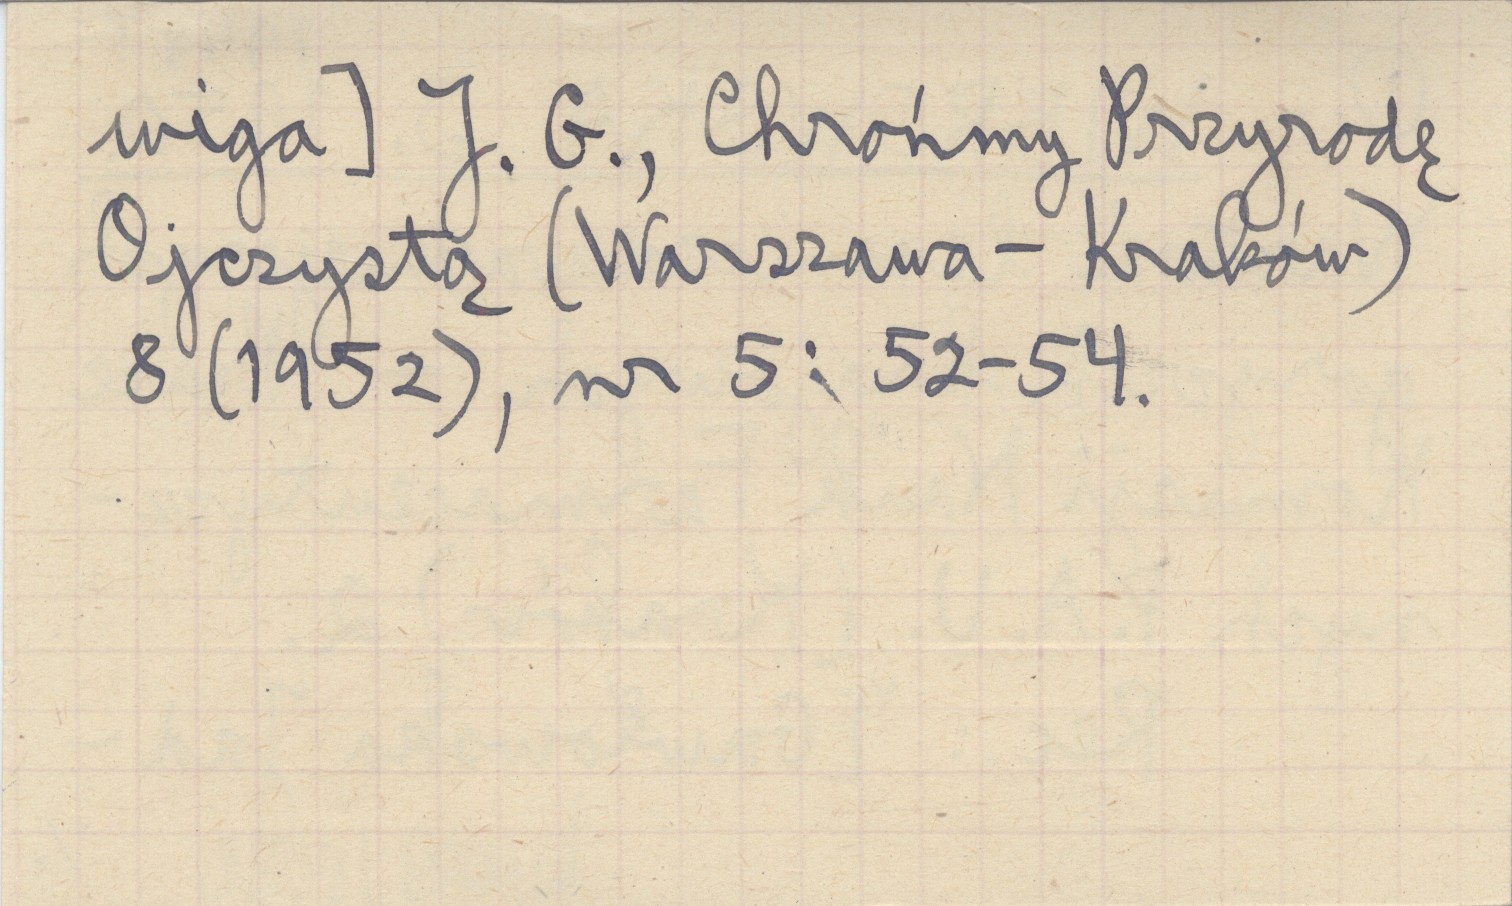 wiga] J. G., Chrońmy Przyrodę
Ojczystą (Warszawa - Kraków)
8 (1952), nr 5: 52-54.